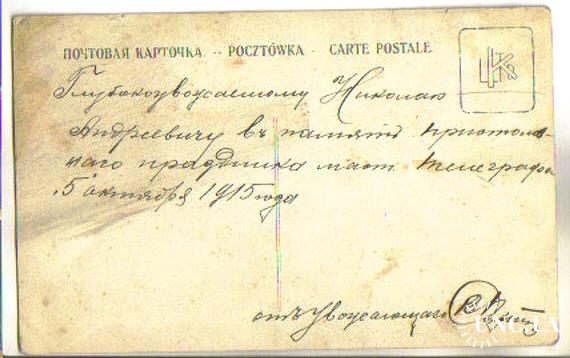 ПОЧТОВАЯ КАРТОЧКА. -- POCZTÓWKA - CARTE POSTALE.
Глубокоуважаемому Николаю
Андреевичу въ память престоль-
наго праздника маст. телеграфа
5 октября 1915 года
отъ уважающаго
UNC.UA